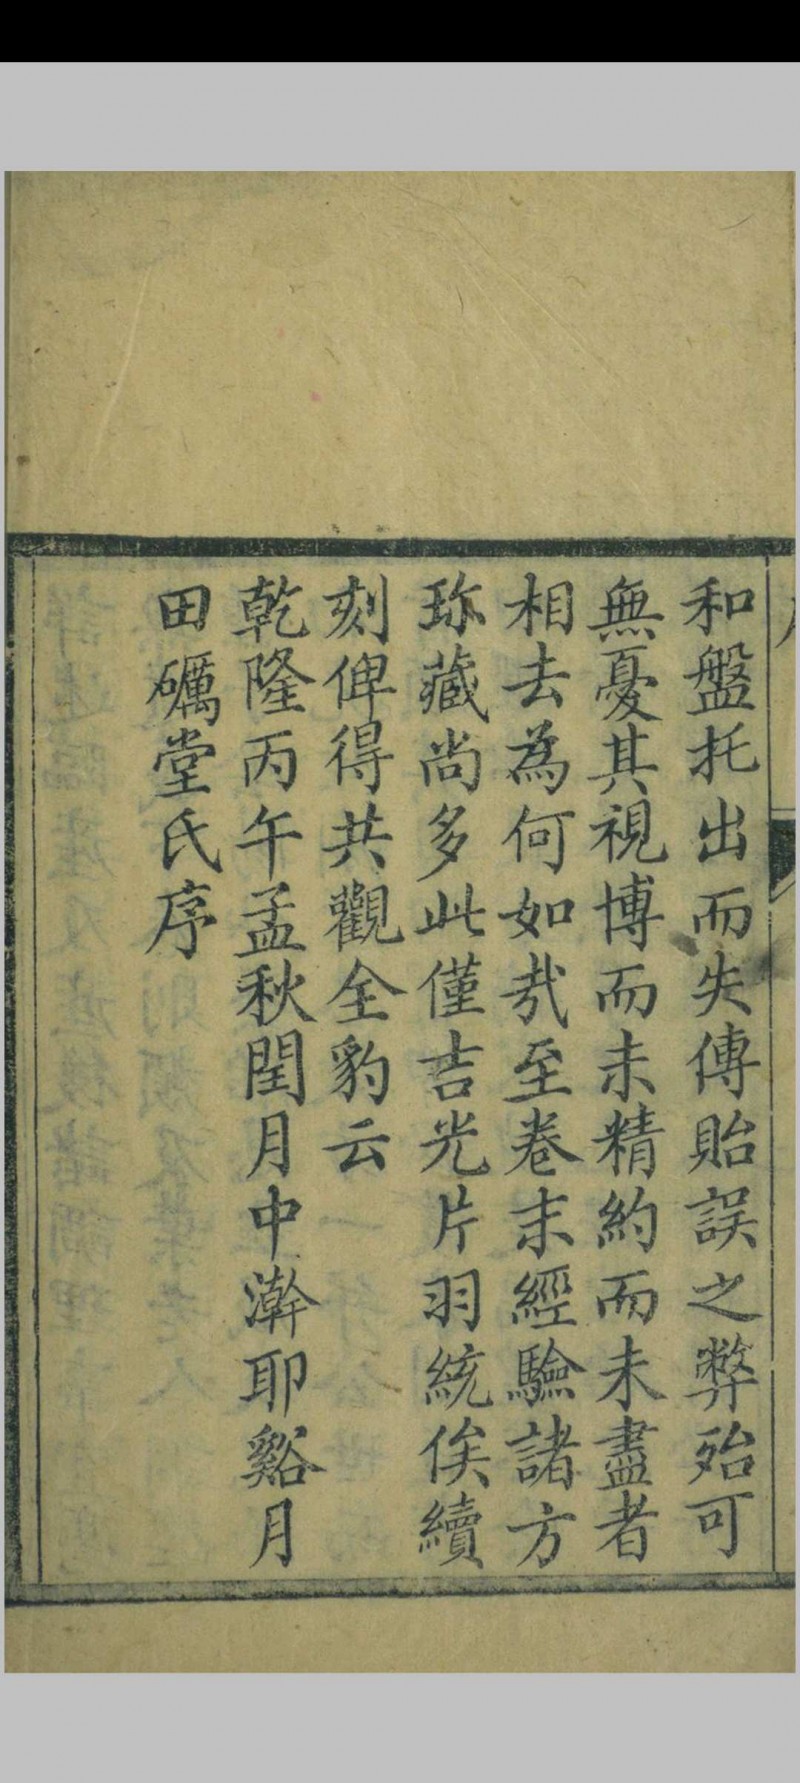 和盤托出而失傳貽誤之弊殆可
無憂其視博而未精約而未盡者
相去為何如哉至卷末經驗諸方
珎藏尚多此僅吉光片羽統俟續
刻俾得共觀全豹云
乾隆丙午孟秋閏月中澣耶谿月
田礪堂氏序